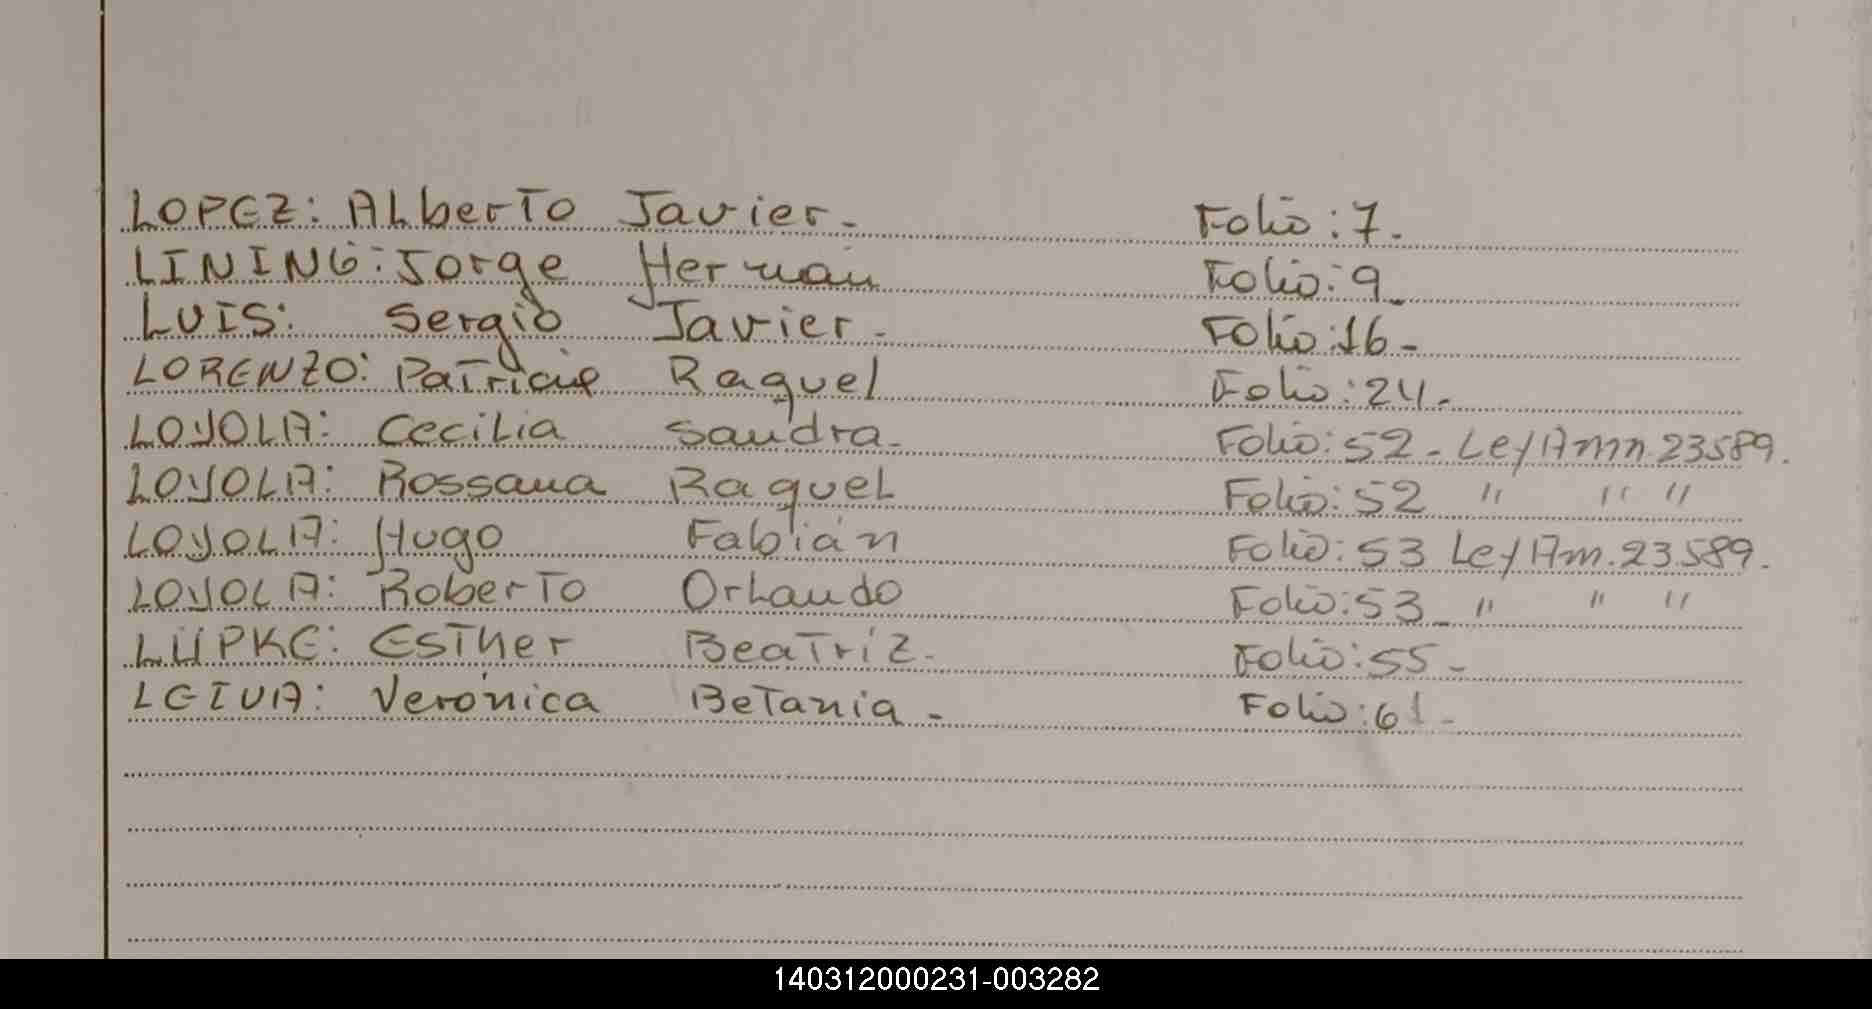 LOPEZ: ALberTo Javier. Folio: 7.
LINING: Jorge Hernán Folio: 9
LUIS: Sergio Javier. Folio: 16-
LORENZO: PaTricia Raquel Folio: 24.
LOYOLA: CeciLia Sandra. Folio: 52- Ley Amn. 23589.
LOYOLA: Rossana RaqueL Folio: 52 " " "
LOYOLA: Hugo Fabián Folio: 53 Ley Am. 23.589.
LOYOLA: RoberTo OrLando Folio: 53 " " "
LÜPKE: EsTher BeaTriz. Folio: 55-
LEIVA: Verónica BeTania. Folio: 61-
140312000231-003282